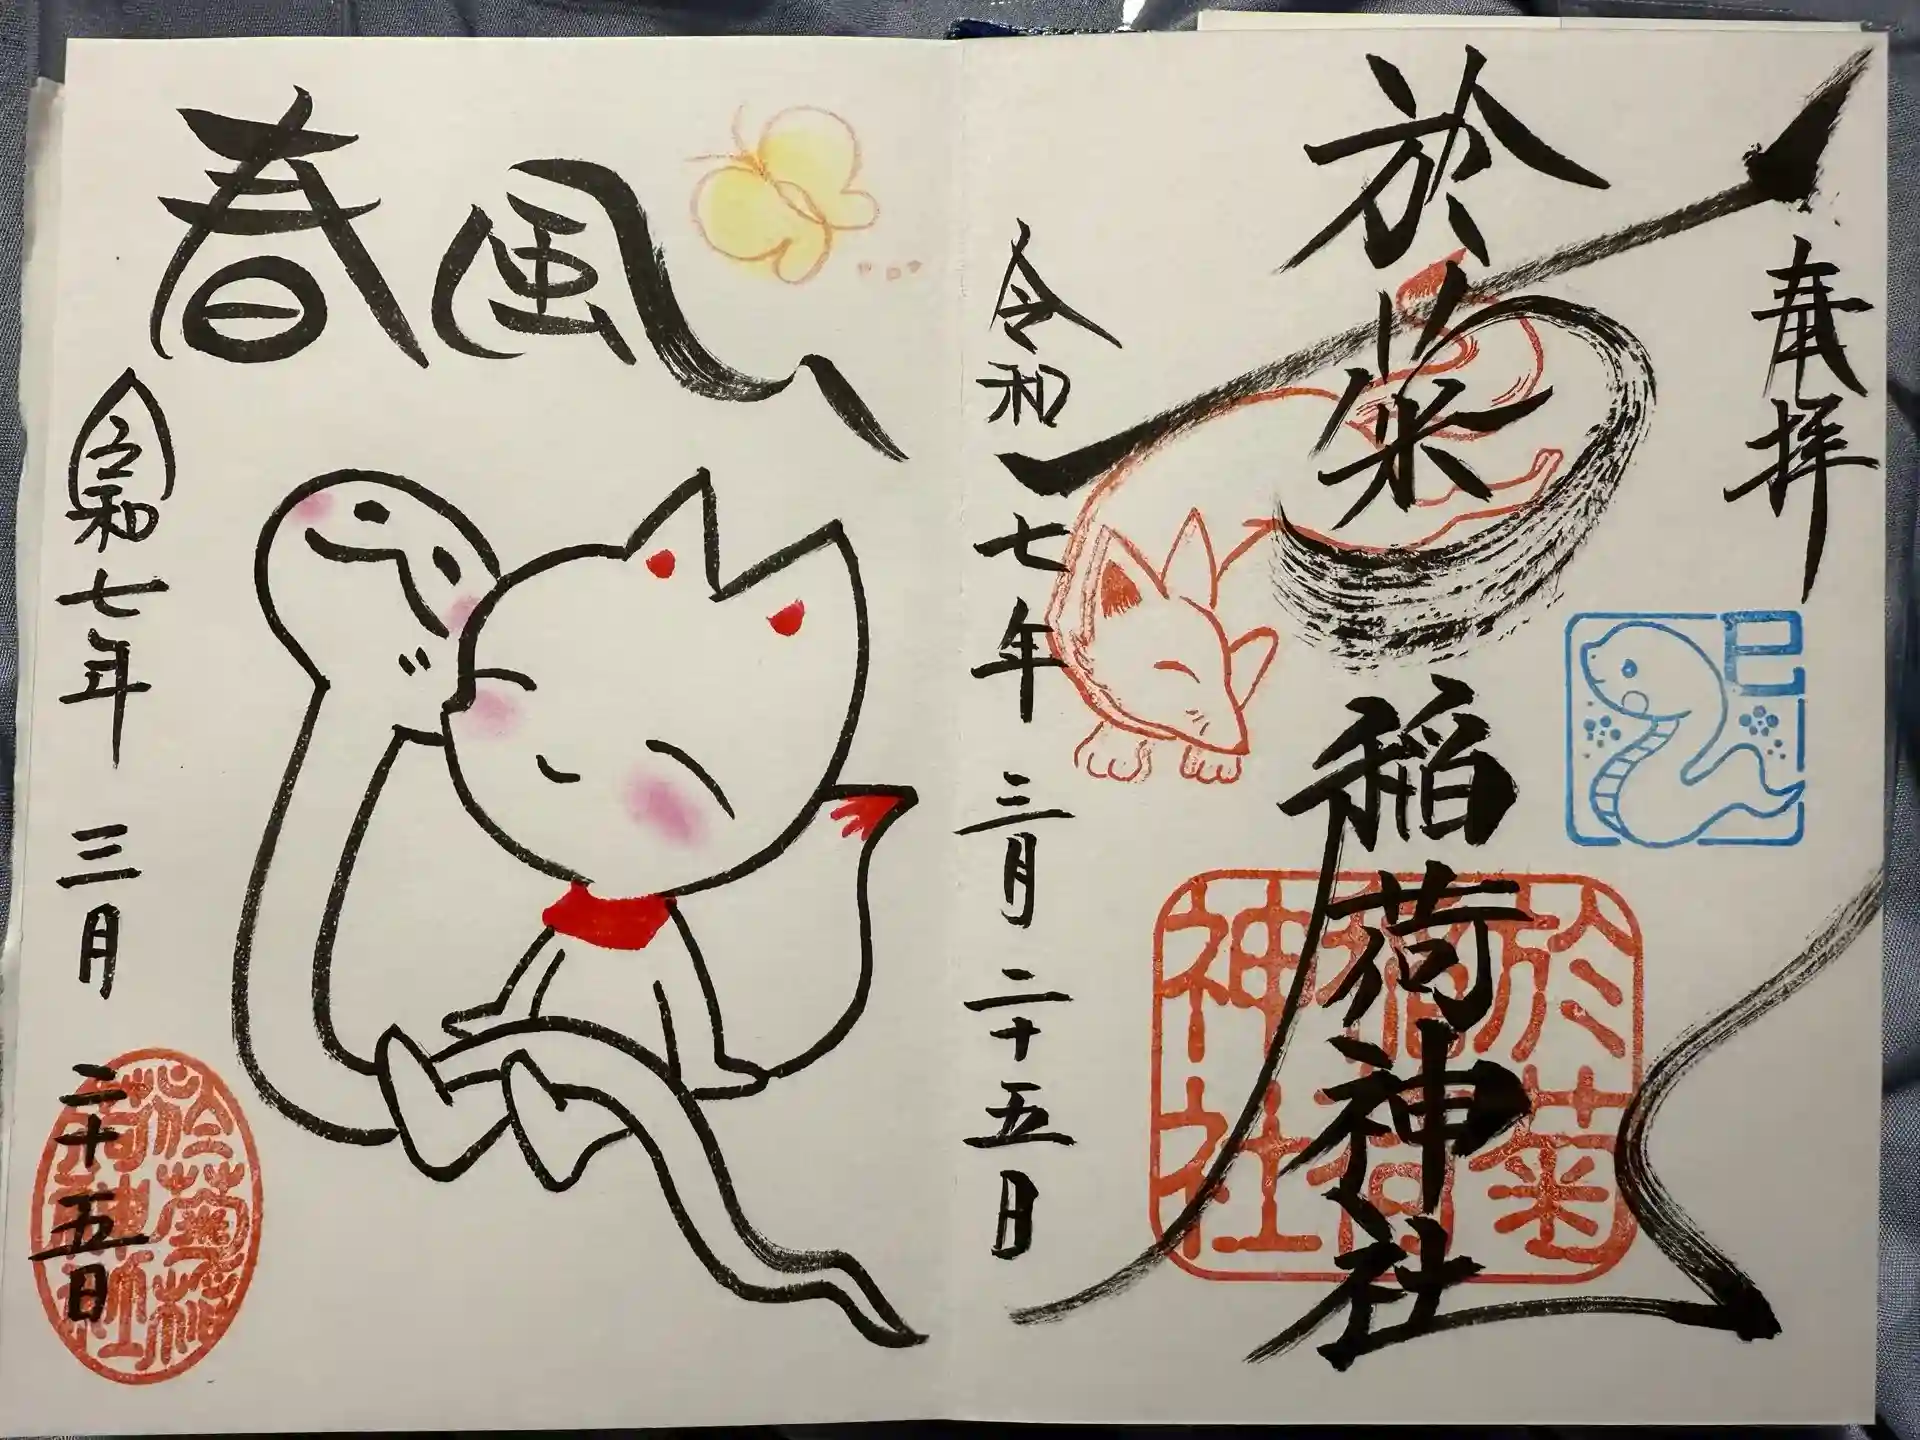 奉拝
於菊稲荷神社
巳
於菊
稲荷
神社
令和七年三月二十五日
春風
令和七年三月二十五日
於菊稲
荷神社